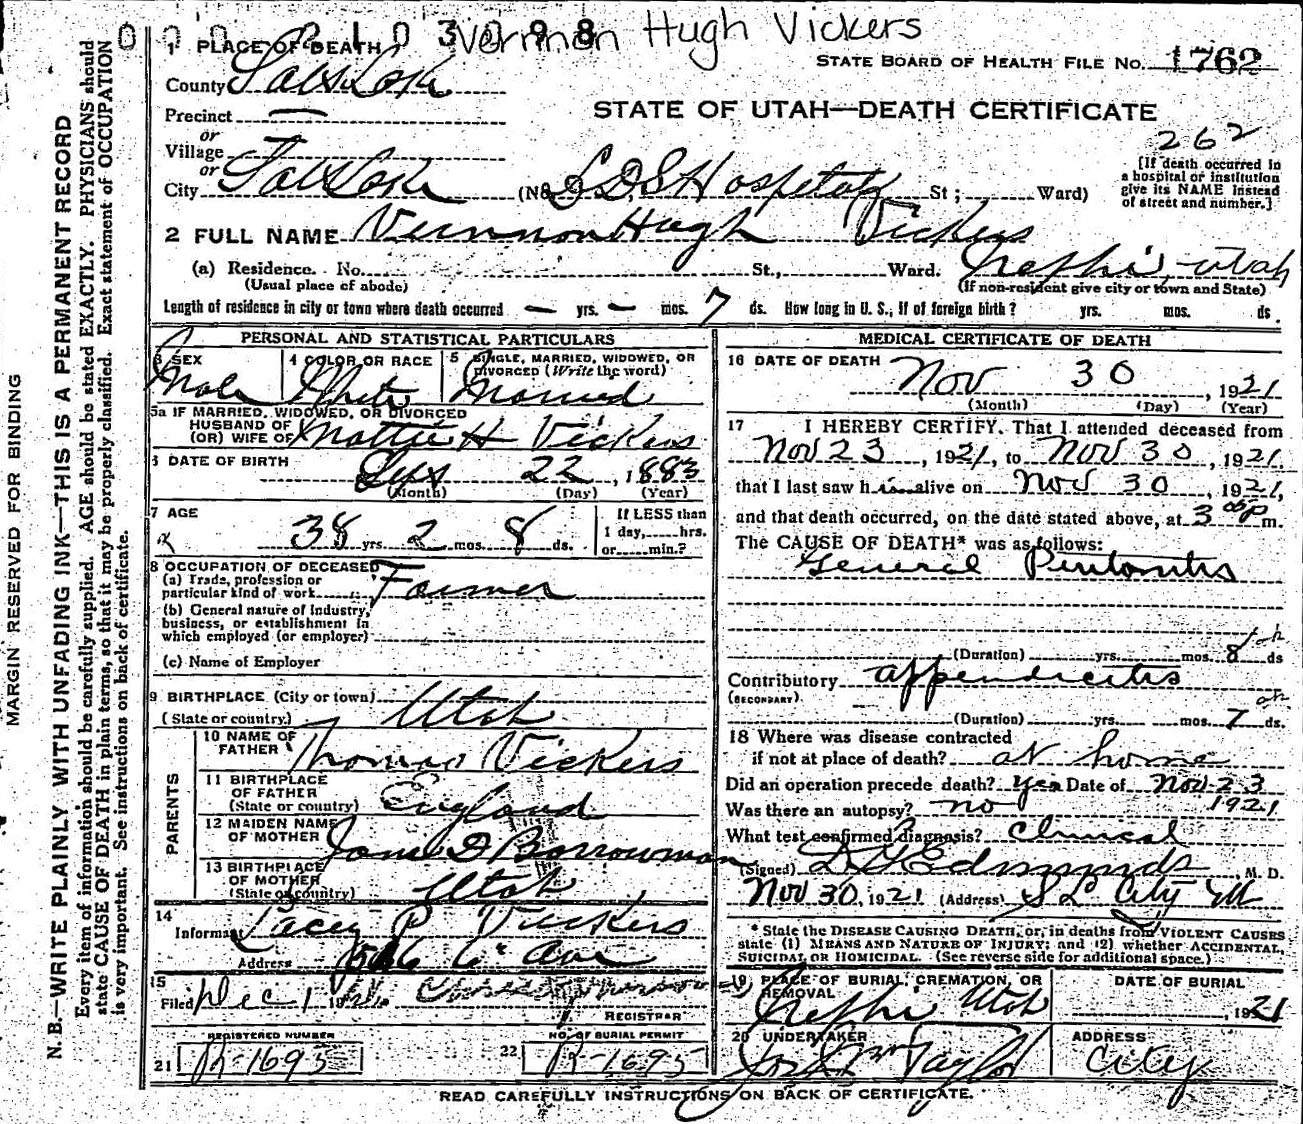 Vernnon Hugh Vickers
STATE BOARD OF HEALTH FILE NO. 1762
STATE OF UTAH—DEATH CERTIFICATE
262
[If death occurred in
a hospital or institution
give its NAME instead
of street and number.]
1 PLACE OF DEATH
County Salt Lake
Precinct —
or
Village
or
City Salt Lake (No. L D S Hospital St; Ward)
2 FULL NAME Vernnon Hugh Vickers
(a) Residence. No. St., Ward. Nephi, Utah
(Usual place of abode) (If non-resident give city or town and State)
Length of residence in city or town where death occurred — yrs. — mos. 7 ds. How long in U. S., if of foreign birth? yrs. mos. ds.
PERSONAL AND STATISTICAL PARTICULARS
3 SEX 4 COLOR OR RACE 5 SINGLE, MARRIED, WIDOWED, OR
DIVORCED (Write the word)
Male White Married
5a IF MARRIED, WIDOWED, OR DIVORCED
HUSBAND OF
(OR) WIFE OF Mattie H Vickers
6 DATE OF BIRTH 22, 1883
(Month) (Day) (Year)
7 AGE If LESS than
38 yrs. 2 mos. 8 ds. 1 day, hrs.
or min.?
8 OCCUPATION OF DECEASED
(a) Trade, profession or
particular kind of work Farmer
(b) General nature of Industry,
business, or establishment in
which employed (or employer)
(c) Name of Employer
9 BIRTHPLACE (City or town)
(State or country) Utah
PARENTS
10 NAME OF
FATHER Thomas Vickers
11 BIRTHPLACE
OF FATHER
(State or country) England
12 MAIDEN NAME
OF MOTHER Jane D Borrowman
13 BIRTHPLACE
OF MOTHER
(State or country) Utah
14
Informant Lacey P Vickers
Address 6" Ave
15
Filed Dec 1 1921
REGISTRAR
REGISTERED NUMBER NO. OF BURIAL PERMIT
21 R-1695 22 R-1695
MEDICAL CERTIFICATE OF DEATH
16 DATE OF DEATH Nov 30, 1921
(Month) (Day) (Year)
17 I HEREBY CERTIFY, That I attended deceased from
Nov 23, 1921, to Nov 30, 1921,
that I last saw him alive on Nov 30, 1921,
and that death occurred, on the date stated above, at 3 00 P m.
The CAUSE OF DEATH* was as follows:
General Peritonitis
(Duration) yrs. mos. 8 ds
Contributory appendicitis
(SECONDARY)
(Duration) yrs. mos. 7 ds.
18 Where was disease contracted
if not at place of death? at home
Did an operation precede death? Yes Date of Nov-23
1921
Was there an autopsy? no
What test confirmed diagnosis? Clinical
(Signed) Edmunds, M. D.
Nov 30, 1921 (Address) S L City
* State the DISEASE CAUSING DEATH, or, in deaths from VIOLENT CAUSES
state (1) MEANS AND NATURE OF INJURY; and (2) whether ACCIDENTAL,
SUICIDAL OR HOMICIDAL. (See reverse side for additional space.)
19 PLACE OF BURIAL, CREMATION, OR
REMOVAL
Nephi Utah
DATE OF BURIAL
, 1921
20 UNDERTAKER ADDRESS
Taylor City
READ CAREFULLY INSTRUCTIONS ON BACK OF CERTIFICATE.
MARGIN RESERVED FOR BINDING
N. B.—WRITE PLAINLY WITH UNFADING INK—THIS IS A PERMANENT RECORD
Every item of information should be carefully supplied. AGE should be stated EXACTLY. PHYSICIANS should
state CAUSE OF DEATH in plain terms, so that it may be properly classified. Exact statement of OCCUPATION
is very important. See instructions on back of certificate.